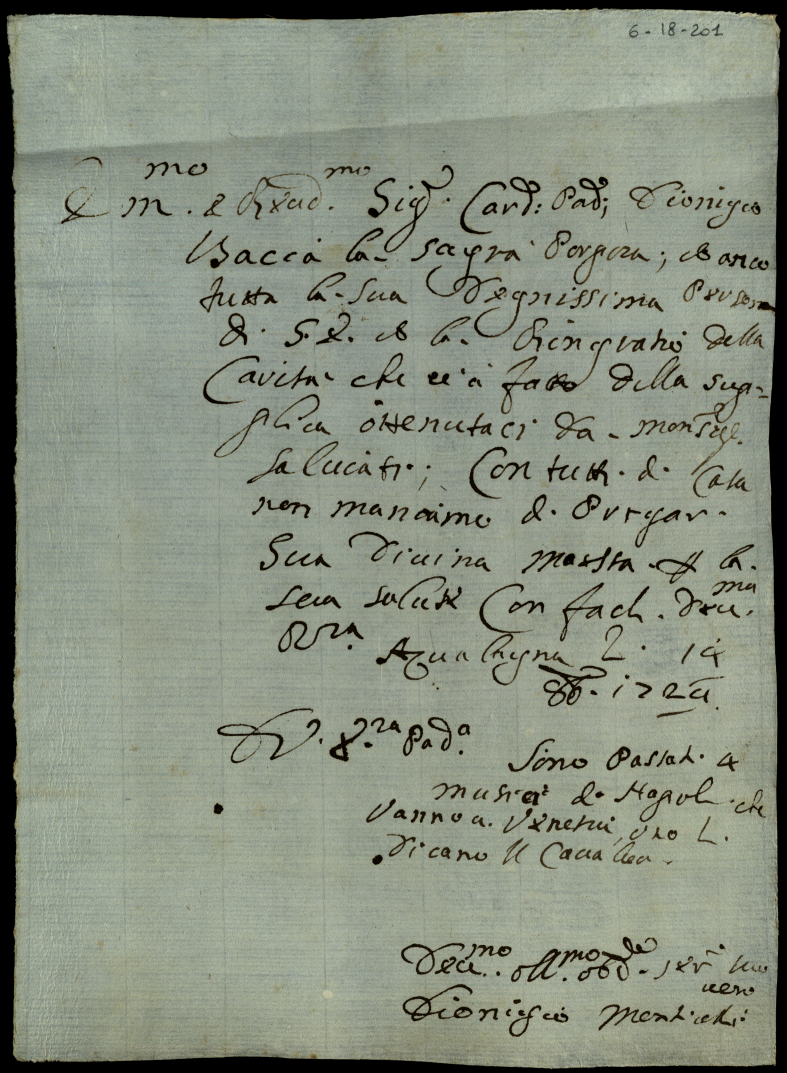 6-18-201
Em.mo & Rxud.mo Sigr. Card: Pad; Dionigio
Baccia la sagra Porpora; & anco
tutta la sua Degnissima Persona
di S.E. & la Ringratio della
Carita che ci a fatto della sup-
plica ottenutaci da monsigr.
Salviati; Con tutti di Casa
non mancaimo di Pregar
Sua Divina maesta p la
sua salute Con fach. deu.ma
Acqualagna li 14
8b. 172
D V. E.ra Pad.a
Sono Passati 4
musici di Napoli che
Vanno a Venetia, uno li
dicano Il Cava
Deu.mo obb.mo
Dionigio